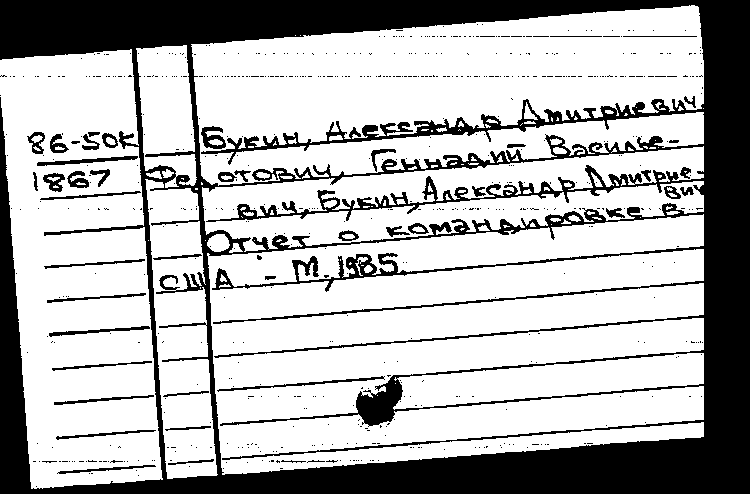 86-50К Букин, Александр Дмитриевич.
1867 Федотович, Геннадий Василье-
вич, Букин, Александр Дмитрие-
вич
Отчет о командировке в
США. - М., 1985.